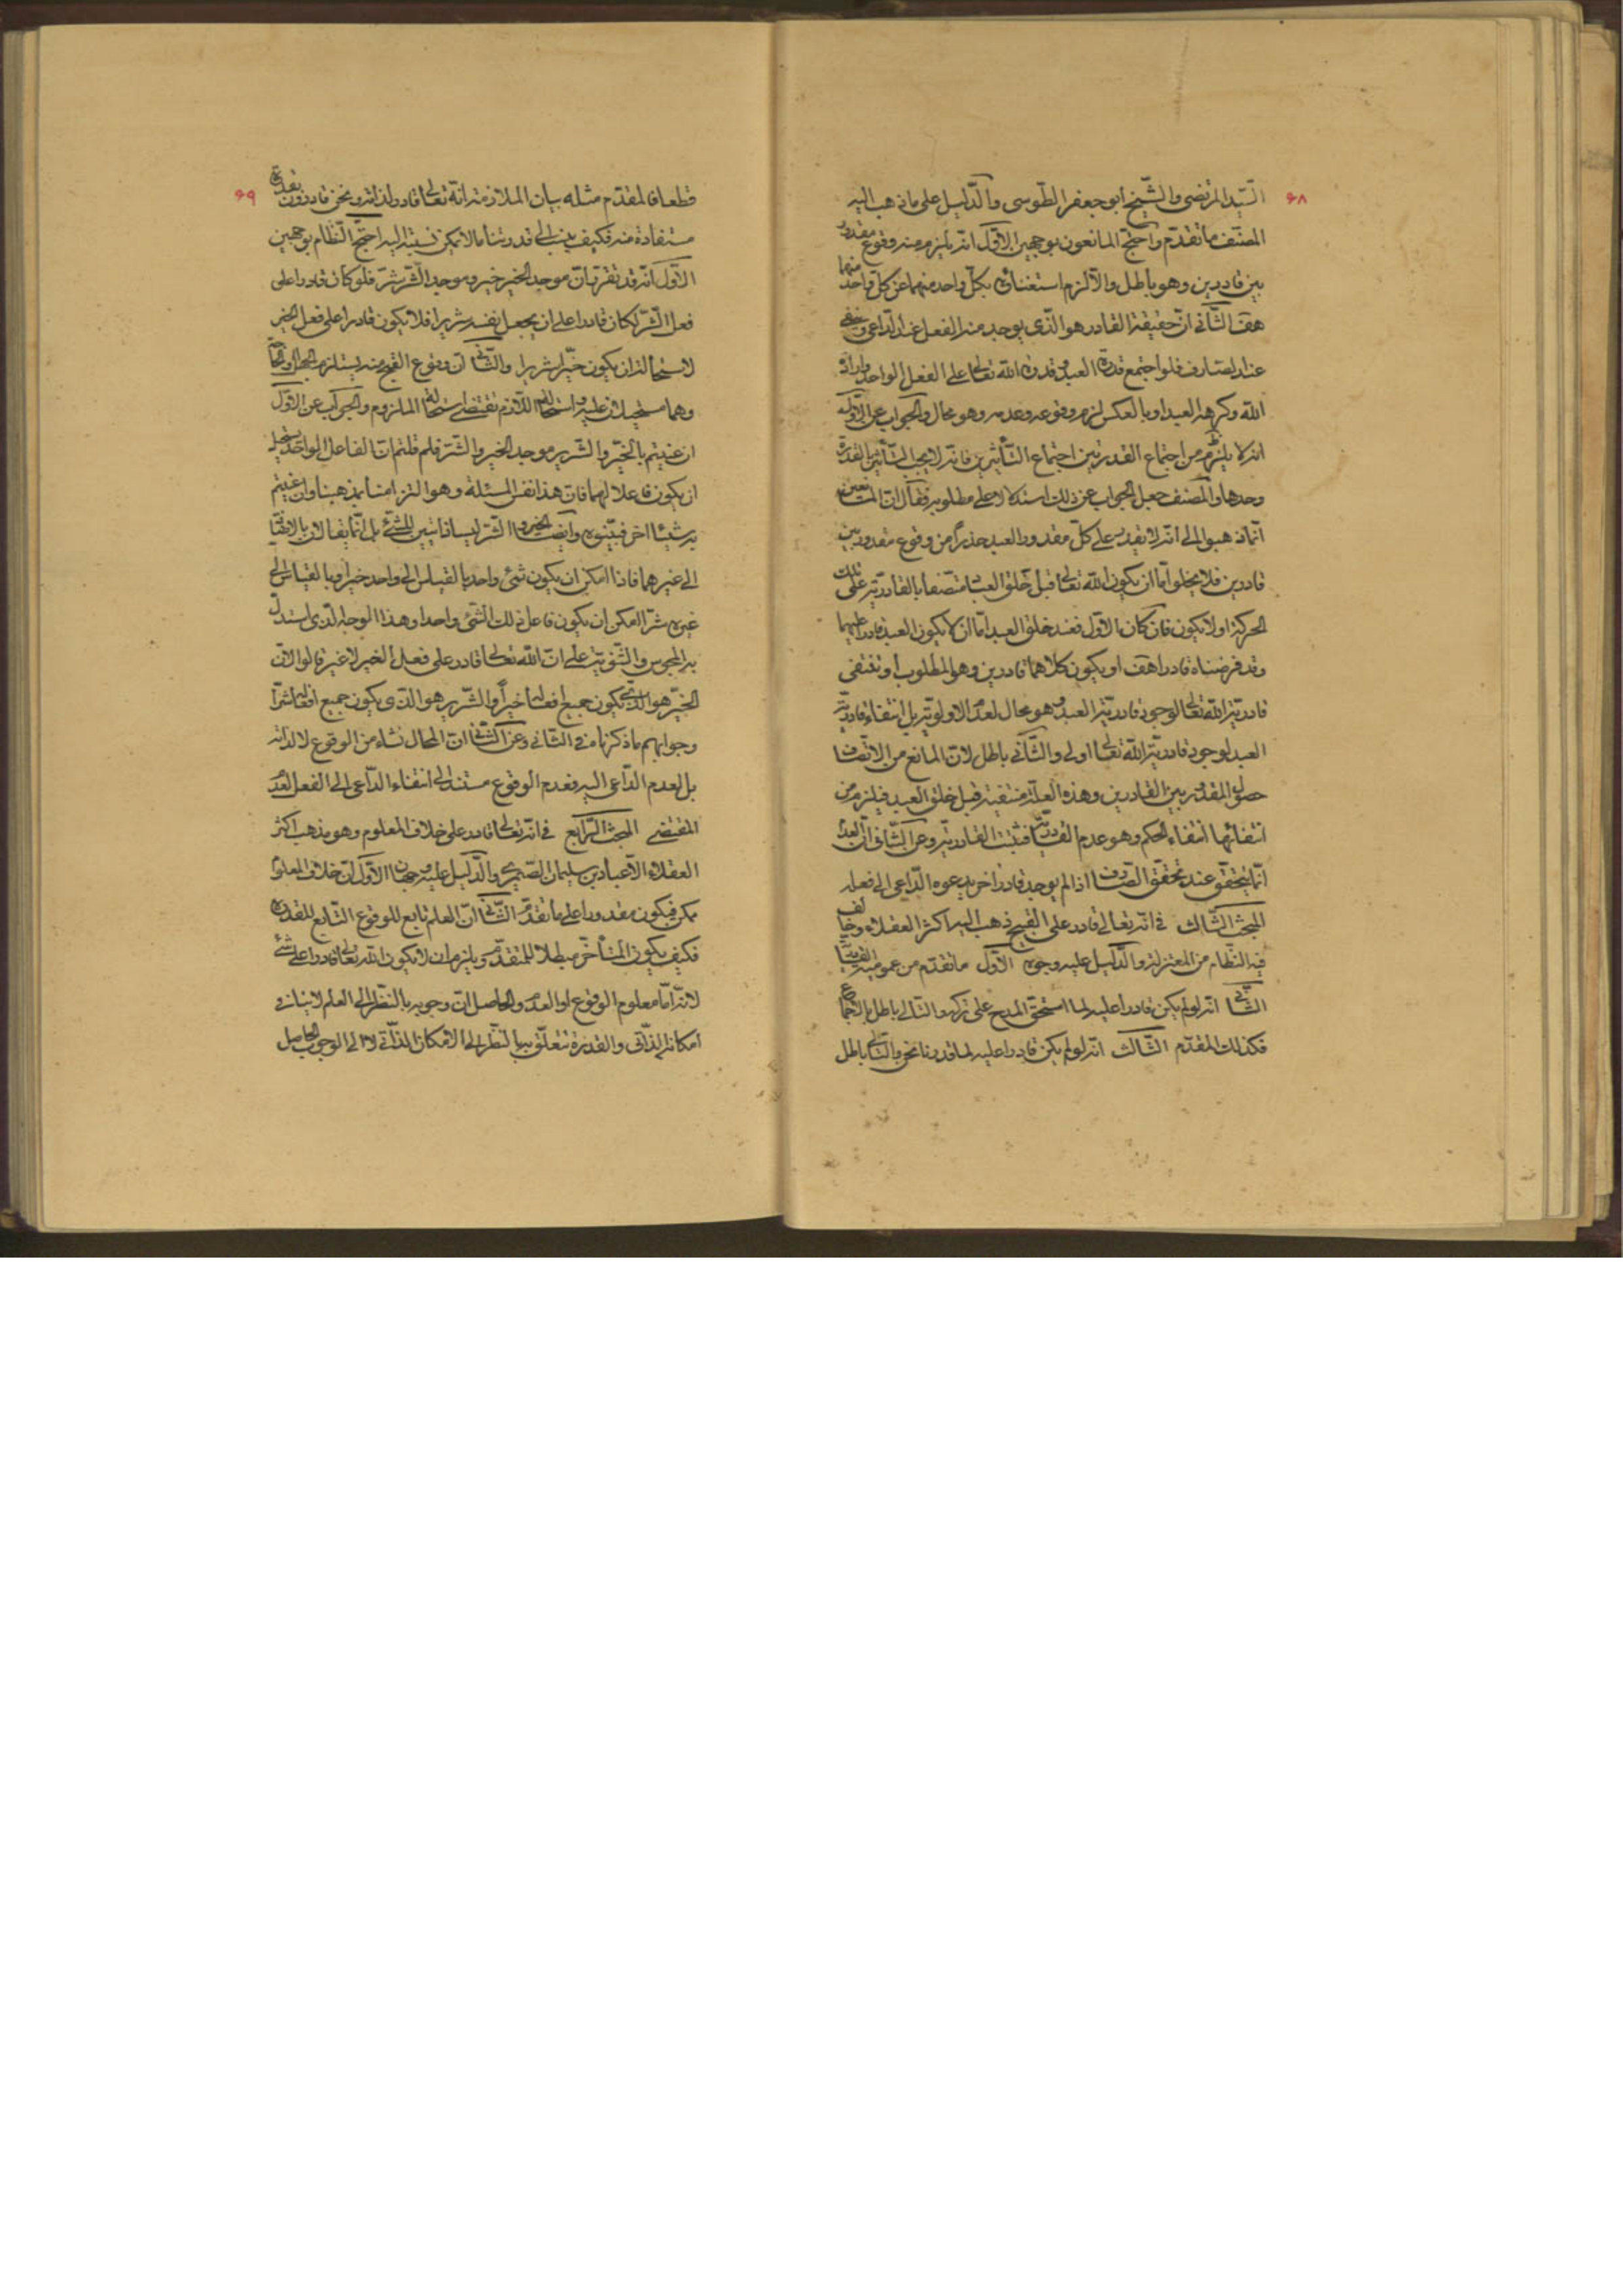 ۶۸
السّيد المرتضى والشّيخ ابو جعفر الطّوسى والدّليل على ما ذهب اليه
المصنّف ما تقدّم واحتجّ المانعون بوجهين الاوّل انّه يلزم منه وقوع مقدور
بين قادرين وهو باطل والّا لزم استغنائه بكلّ واحد منهما عن كلّ واحد منهما
هف الثّانى انّ حقيقة القادر هو الّذى يوجد منه الفعل عند الدّاعى وينتفى
عند الصّارف فلو اجتمع قدرة العبد وقدرة الله تعالى على الفعل الواحد واراده
الله وكرهه العبد او بالعكس لزم وقوعه وعدمه وهو محال والجواب عن الاوّل
انّه لا يلزم من اجتماع القدرتين اجتماع التّأثيرين فانّه لا يجب التّأثير بالقدرة
وحدها والمصنّف جعل الجواب عن ذلك استدلالا على مطلوبه فقال انّ المانعين
انّما ذهبوا الى انّه لا يقدر على كلّ مقدور العبد حذراً من وقوع مقدور بين
قادرين فلا يخلو امّا ان يكون الله تعالى قبل خلق العبد متّصفا بالقادريّة على تلك
الحركة او لا يكون فان كان الاوّل فعند خلق العبد امّا ان لا يكون العبد قادرا عليها
وقد فرضناه قادرا هف او يكون كلاهما قادرين وهو المطلوب او تنتفى
قادريّة الله تعالى لوجود قادريّة العبد وهو محال لعدم الاولويّة بل انتفاء قادريّة
العبد لوجود قادريّة الله تعالى اولى والثّانى باطل لانّ المانع من الاتّصاف
حصول المقدور بين القادرين وهذه العلّة منتفية قبل خلق العبد فيلزم من
انتفائها انتفاء الحكم وهو عدم القادريّة فثبتت القادريّة وعن الثّانى انّ العدم
انّما يتحقّق عند تحقّق الصّارف اذا لم يوجد قادر اخر يدعوه الدّاعى الى فعله
المبحث الثّالث فى انّه تعالى قادر على القبيح ذهب اليه اكثر العقلاء وخالف
فيه النّظام من المعتزلة والدّليل عليه وجوه الاوّل ما تقدّم من عموميّة القادريّة
الثّانى انّه لو لم يكن قادرا عليه لما استحقّ المدح على تركه والتّالى باطل بالاجماع
فكذلك المقدّم الثّالث انّه لو لم يكن قادرا عليه لما قدرنا نحن والتّالى باطل
۶۹
قطعا فالمقدّم مثله بيان الملازمة انّه تعالى قادر لذاته ونحن قادرون بقدرة
مستفادة منه فكيف ينسب الى قدرتنا ما لا يمكن نسبته اليه احتجّ النّظام بوجهين
الاوّل انّه قد تقرّر انّ موجد الخير خير وموجد الشّر شرّ فلو كان قادرا على
فعل الشّر لكان قادرا على ان يجعل نفسه شريرا فلا يكون قادرا على فعل الخير
لاستحالة ان يكون خيّرا شريرا والثّانى انّ وقوع القبيح منه يستلزم الجهل او الحاجة
وهما مستحيلان عليه واستحالة اللّازم تقتضى استحالة الملزوم والجواب عن الاوّل
ان عنيتم بالخيّر والشّرير موجد الخير والشّر فلم قلتم انّ الفاعل الواحد يستحيل
ان يكون فاعلا لهما فانّ هذا نفس المسئلة وهو التزام منّا بمذهبنا وان عنيتم
به شيئا اخر فبيّنوه وايضا الخير والشّر ليسا ذاتيين للشّئ بل انّما يقالان بالاضافة
الى غيرهما فاذا امكن ان يكون شئ واحد بالقياس الى واحد خيرا وبالقياس الى
غيره شرّا امكن ان يكون فاعل ذلك الشّئ واحدا وهذا الوجه الّذى استدلّ
به المجوس والثّنويّة على انّ الله تعالى قادر على فعل الخير لا غير قالوا لانّ
الخيّر هو الّذى يكون جميع افعاله خيراً والشّرير هو الّذى يكون جميع افعاله شرّا
وجوابهم ما ذكرناه فى الثّانى وعن الثّانى انّ المحال نشاء من الوقوع لا لذاته
بل لعدم الدّاعى اليه فعدم الوقوع مستند الى انتفاء الدّاعى الى الفعل لعدم
المقتضى المبحث الرّابع فى انّه تعالى قادر على خلاف المعلوم وهو مذهب اكثر
العقلاء الّا عباد بن سليمان الصّيمرى والدّليل عليه وجهان الاوّل انّ خلاف المعلوم
ممكن فيكون مقدورا على ما تقدّم الثّانى انّ العلم تابع للوقوع التّابع للقدرة
فكيف يكون المتأخّر مبطلا للمتقدّم ويلزم ان لا يكون الله تعالى قادرا على شئ
لانّه امّا معلوم الوقوع او العدم والحاصل انّ وجوبه بالنّظر الى العلم لا ينافى
امكانه الذّاتى والقدرة تتعلّق به بالنّظر الى الامكان الذّاتى لا الى الوجوب الحاصل